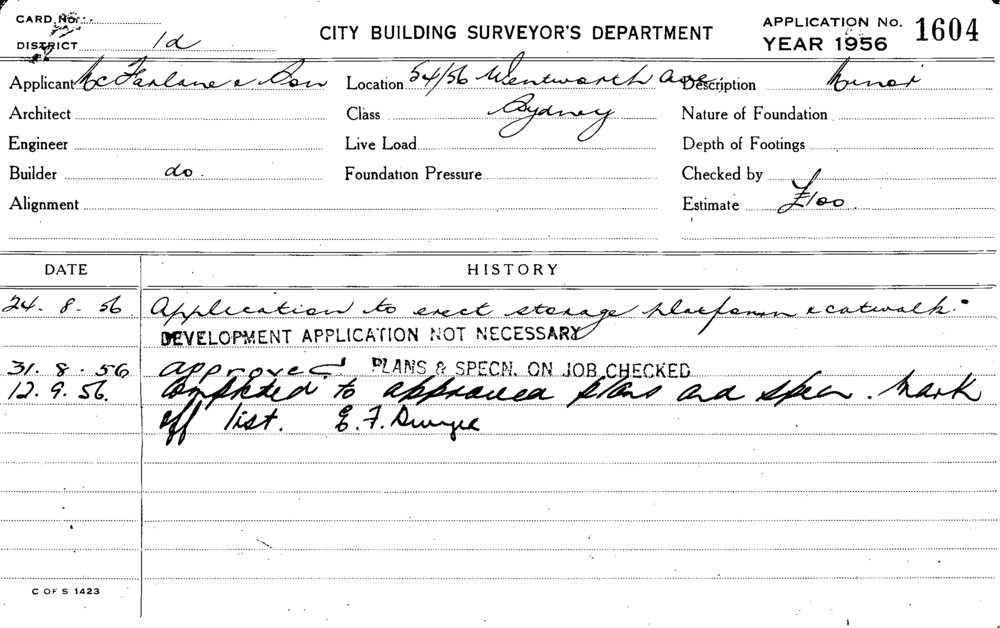 CARD No.
DISTRICT 1d
CITY BUILDING SURVEYOR'S DEPARTMENT
APPLICATION No. 1604
YEAR 1956
Applicant McFarlane & Son Location 54/56 Wentworth Ave Description Minor
Architect Class Sydney Nature of Foundation
Engineer Live Load Depth of Footings
Builder do. Foundation Pressure Checked by
Alignment Estimate £100
DATE HISTORY
24. 8. 56 Application to erect storage platform & catwalk.
DEVELOPMENT APPLICATION NOT NECESSARY
31. 8. 56 approved PLANS & SPECN. ON JOB CHECKED
12. 9. 56. Completed to approved plans and specn. Mark
off list. E. F. Dwyer
C OF S 1423